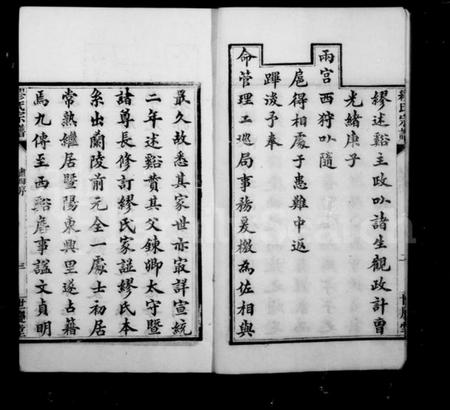 繆述谿主政以諸生觀政計曹
光緒庚子
兩宮西狩以隨
扈得相處于患難中返
蹕後予奉
命管理工巡局事務爰檄為佐相與
最久故悉其家世亦最詳宣統
二年述谿賚其父鍊卿太守暨
諸尊長修訂繆氏家譜繆氏本
系出蘭陵前元全一處士初居
常熟繼居暨陽東興里遂占籍
焉九傳至西谿
事謚文貞明
繆氏宗譜
三